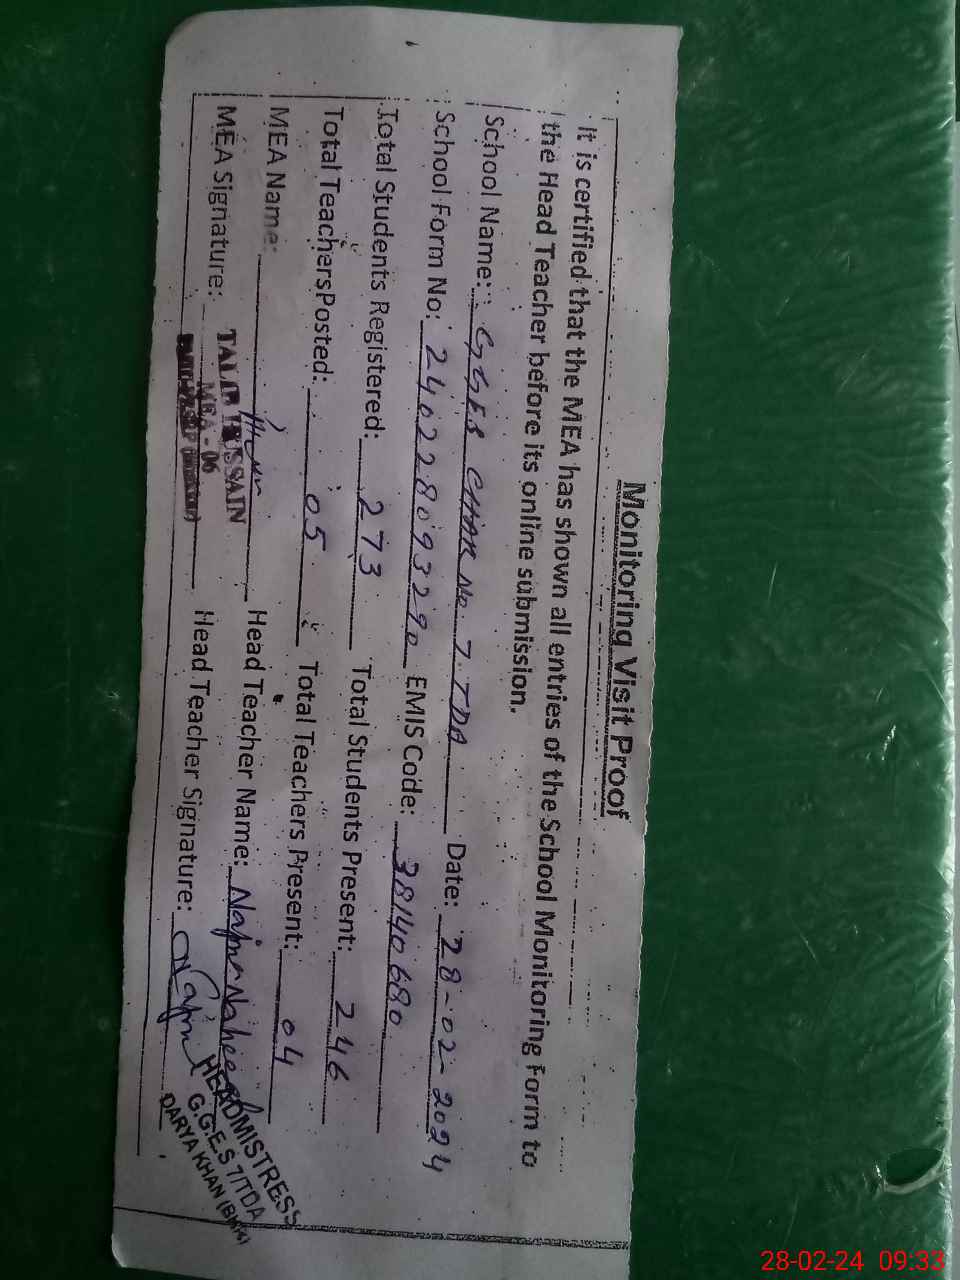 Monitoring Visit Proof
It is certified that the MEA has shown all entries of the School Monitoring Form to
the Head Teacher before its online submission.
School Name: GGES CHAK No. 7. TDA Date: 28-02-2024
School Form No: 240228093290 EMIS Code: 38140680
Total Students Registered: 273 Total Students Present: 246
Total Teachers Posted: 05 Total Teachers Present: 04
MEA Name: Head Teacher Name: Najma Naheed
MEA Signature: Head Teacher Signature: Najma
TALIB HUSSAIN
MEA - 06
HEADMISTRESS
G.G.E.S 7/TDA
DARYA KHAN (BKK)
28-02-24 09:33